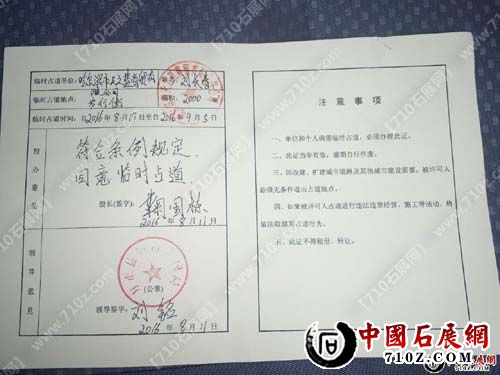 临时占道单位:
限公司
临时占道地点: 步行街 面积: 2000
临时占道时间: 自2016年8月17日至2016年9月5日
股办意见
符合条例规定,
同意临时占道
股长(签字):
2016年8月11日
领导意见
(公章)
领导签字:
2016年8月11日
注意事项
一、单位和个人确需临时占道,必须办理此证。
二、此证当年有效,逾期自行作废。
三、因改建、扩建城市道路及其他城市建设需要,被许可人
必须无条件退出占道地点。
四、如果被许可人占道进行违法违章经营、施工等活动,将
依法取缔其占道行为。
五、此证不得租借、转让。
中國石展網
710Z.COM